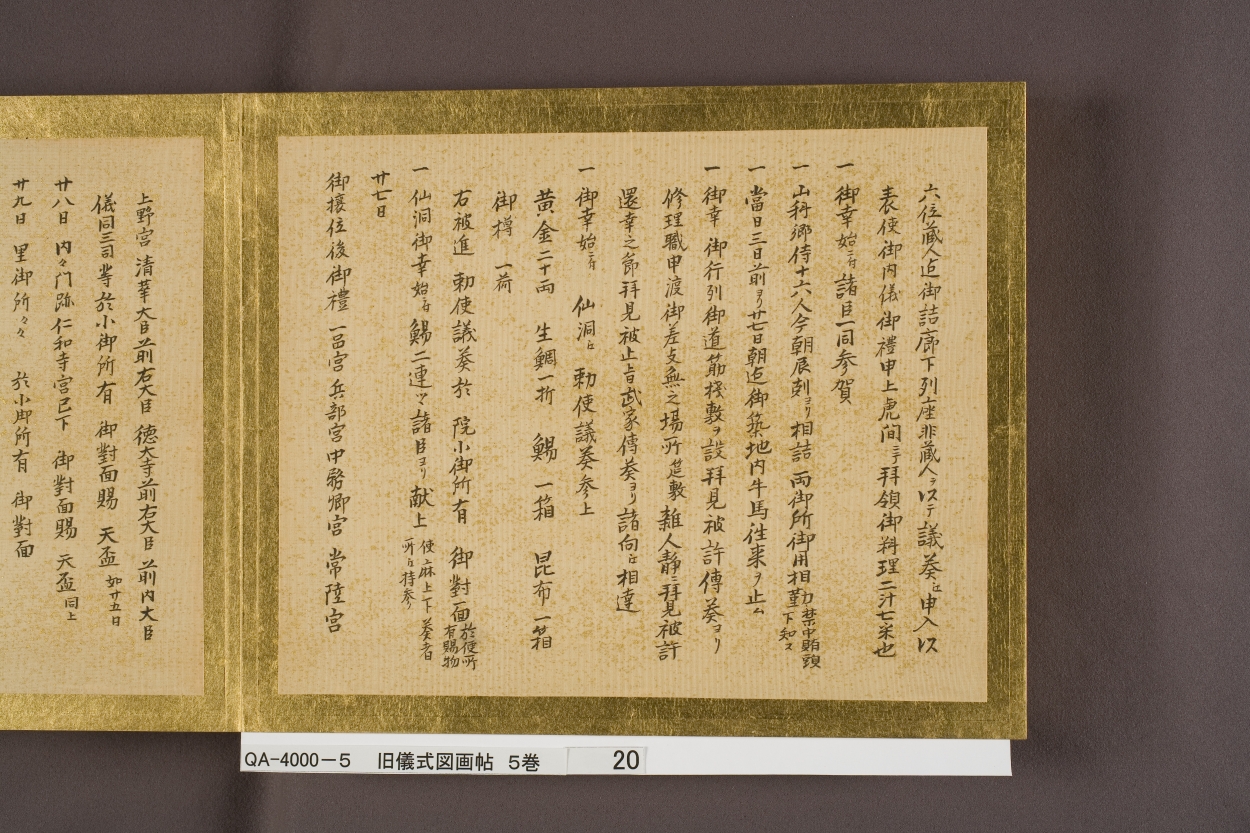 六位蔵人迄御詰廊下列座非蔵人ヲ以テ議奏ニ申入以
表使御内儀御禮申上虎間ニテ拝領御料理二汁七菜也
一 御幸始ニ付諸臣一同参賀
一 山科郷侍十六人今朝辰刻ヨリ相詰 両御所御用相勤 禁中賄頭下知ス
一 當日三日前ヨリ廿七日朝迄御築地内牛馬往来ヲ止ム
一 御幸 御行列御道筋桟敷ヲ設拝見被 許傳奏ヨリ
修理職申渡御差支無之場所筵敷 雑人静ニ拝見被許
還幸之節拝見被止旨武家傳奏ヨリ諸向ニ相達
一 御幸始ニ付 仙洞ニ 勅使議奏参上
黄金二十両 生鯛一折 鯣一箱 昆布一箱
御樽 一荷
右被進 勅使議奏於 院小御所有 御對面 於便所有賜物
一 仙洞御幸始ニ付 鯣二連ツヽ諸臣ヨリ献上 使麻上下奏者所ニ持参
廿七日
御攘位後御禮 一品宮 兵部宮 中務卿宮 常陸宮
上野宮 清華 大臣 前右大臣 徳大寺前右大臣 前内大臣
儀同三司 等於小御所有 御對面賜 天盃 如廿五日
廿八日 内々門跡 仁和寺宮已下 御對面賜 天盃 同上
廿九日 里御所々々 於小御所有 御對面
QA-4000-5 旧儀式図画帖 5巻 20